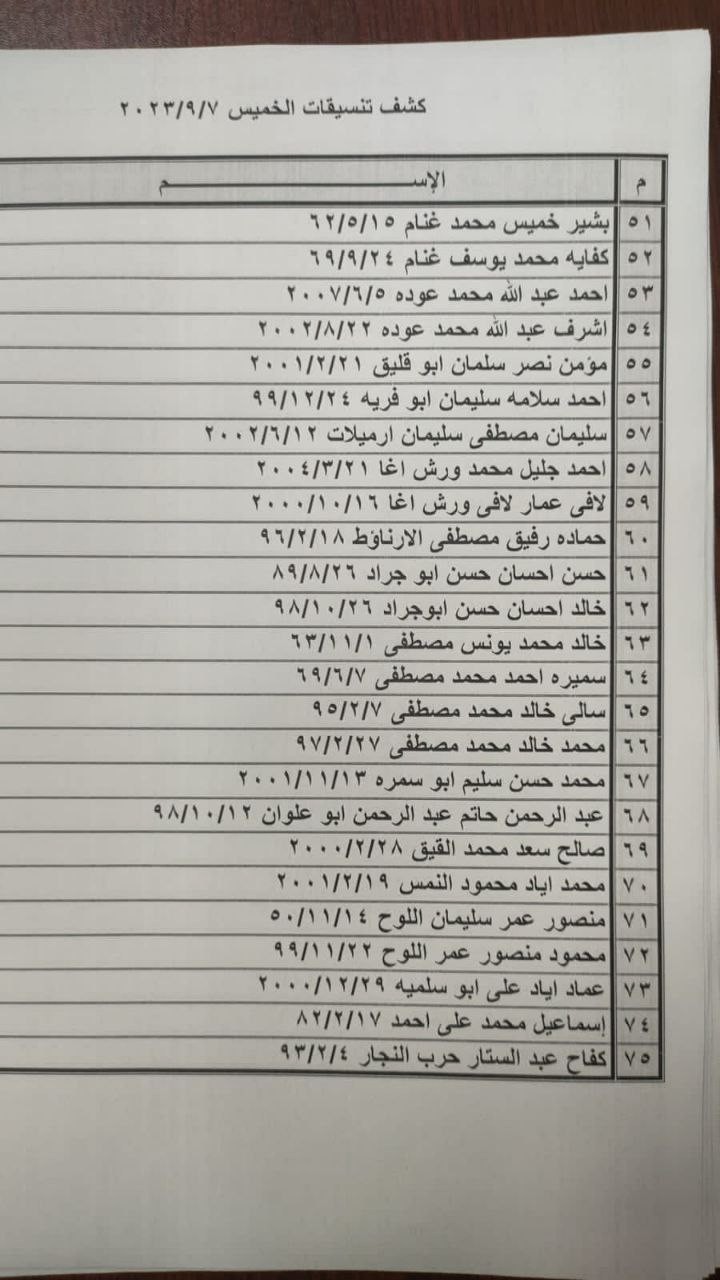 كشف تنسيقات الخميس ٢٠٢٣/٩/٧
م الإســـــــــــــــم
٥١ بشير خميس محمد غنام ٦٢/٥/١٥
٥٢ كفايه محمد يوسف غنام ٦٩/٩/٢٤
٥٣ احمد عبد الله محمد عوده ٢٠٠٧/٦/٥
٥٤ اشرف عبد الله محمد عوده ٢٠٠٢/٨/٢٢
٥٥ مؤمن نصر سلمان ابو قليق ٢٠٠١/٢/٢١
٥٦ احمد سلامه سليمان ابو فريه ٩٩/١٢/٢٤
٥٧ سليمان مصطفى سليمان ارميلات ٢٠٠٢/٦/١٢
٥٨ احمد جليل محمد ورش اغا ٢٠٠٤/٣/٢١
٥٩ لافى عمار لافى ورش اغا ٢٠٠٠/١٠/١٦
٦٠ حماده رفيق مصطفى الارناؤط ٩٦/٢/١٨
٦١ حسن احسان حسن ابو جراد ٨٩/٨/٢٦
٦٢ خالد احسان حسن ابوجراد ٩٨/١٠/٢٦
٦٣ خالد محمد يونس مصطفى ٦٣/١١/١
٦٤ سميره احمد محمد مصطفى ٦٩/٦/٧
٦٥ سالى خالد محمد مصطفى ٩٥/٢/٧
٦٦ محمد خالد محمد مصطفى ٩٧/٢/٢٧
٦٧ محمد حسن سليم ابو سمره ٢٠٠١/١١/١٣
٦٨ عبد الرحمن حاتم عبد الرحمن ابو علوان ٩٨/١٠/١٢
٦٩ صالح سعد محمد القيق ٢٠٠٠/٢/٢٨
٧٠ محمد اياد محمود النمس ٢٠٠١/٢/١٩
٧١ منصور عمر سليمان اللوح ٥٠/١١/١٤
٧٢ محمود منصور عمر اللوح ٩٩/١١/٢٢
٧٣ عماد اياد على ابو سلميه ٢٠٠٠/١٢/٢٩
٧٤ إسماعيل محمد على احمد ٨٢/٢/١٧
٧٥ كفاح عبد الستار حرب النجار ٩٣/٢/٤